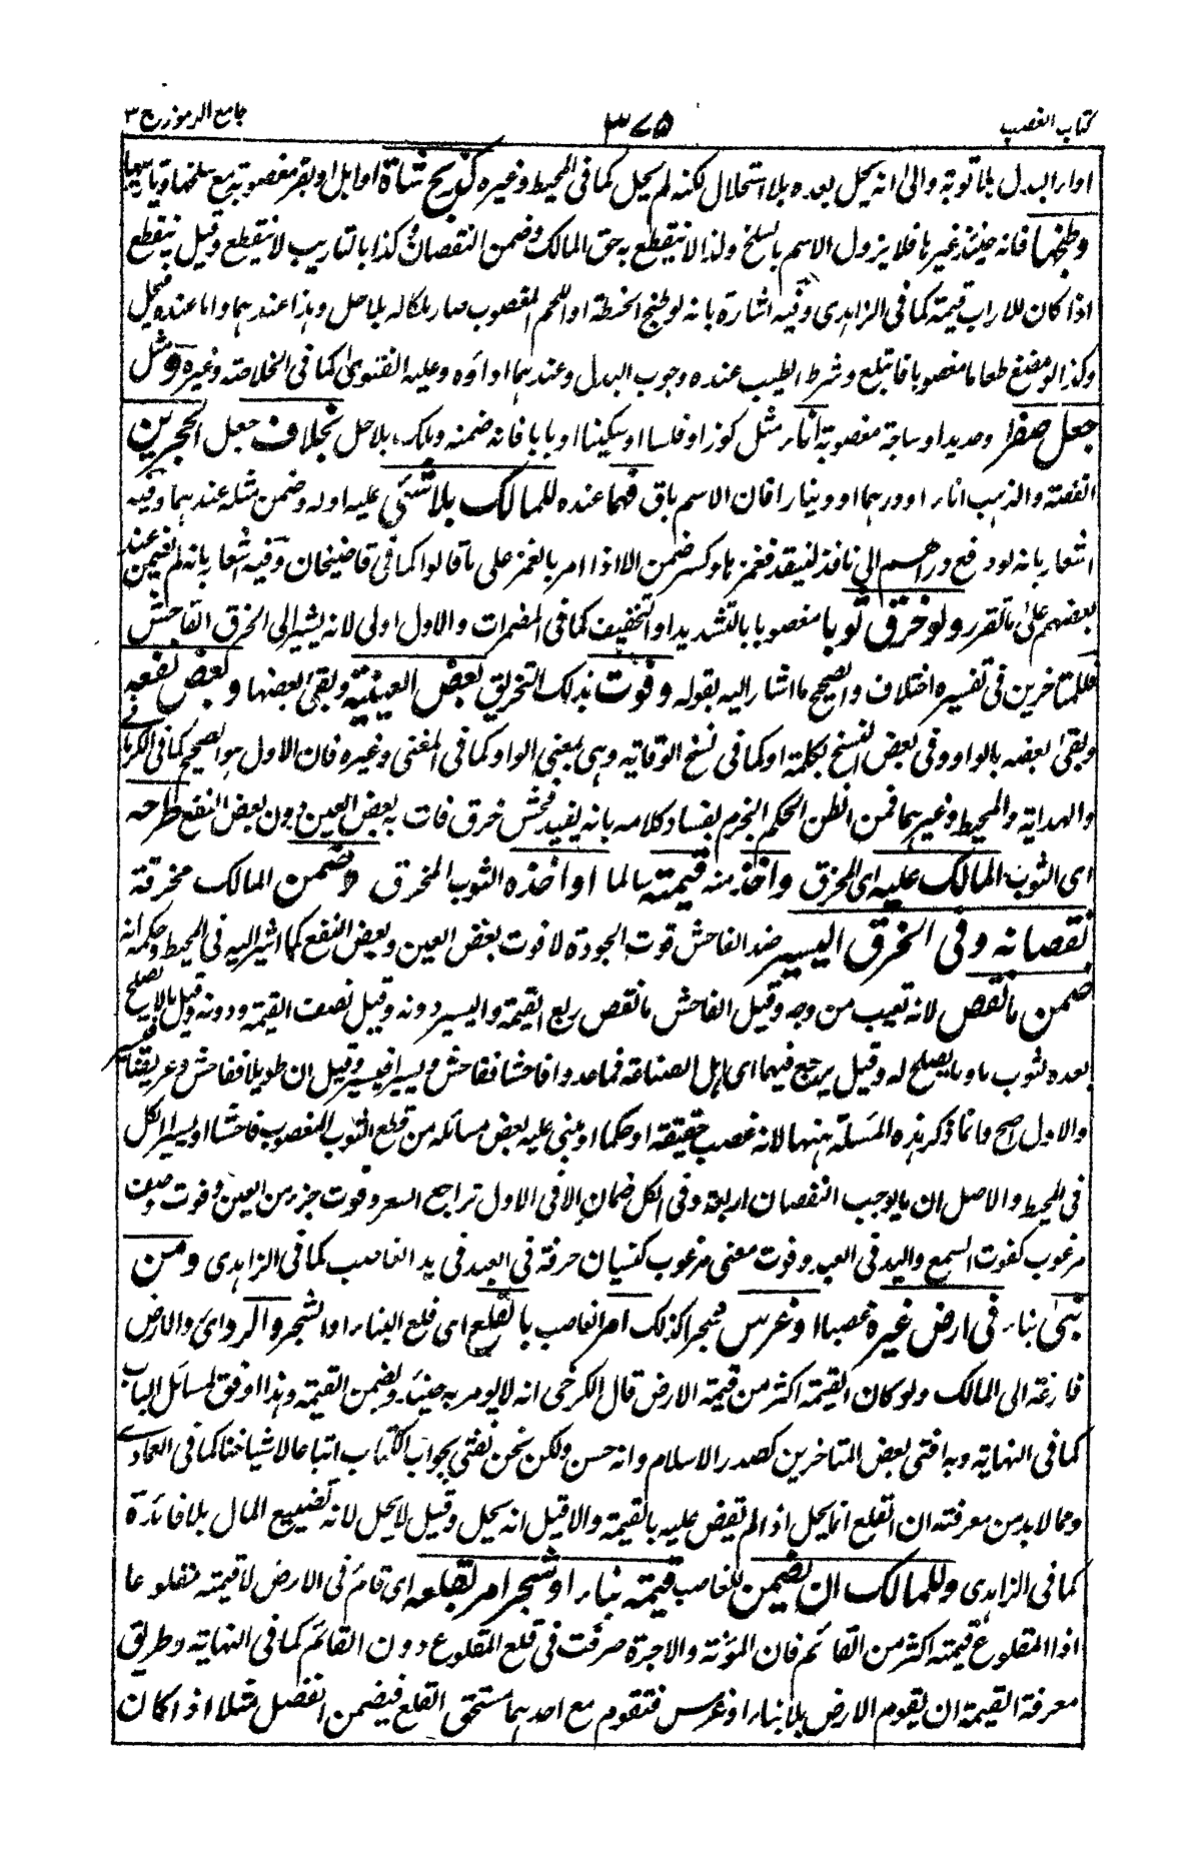 كتاب الغصب ٣٧٥ جامع الرموز ج ٣
اداء البدل بلا توبة والى انه يحل بعده بلا استحلال لكنه لم يحل كما فى المحيط وغيره كذبح شاة او ابل او بقر مغصوبة مع سلخها وتاريبها
وطبخها فانه حينئذ غيرها فلا يزول الاسم بالسلخ ولذا لا ينقطع به حق المالك وضمن النقصان وكذا بالتاريب لا ينقطع وقيل ينقطع
اذا كان للاراب قيمة كما فى الزاهدى وفيه اشارة بانه لو طبخ الحنطة او اللحم المغصوب صار ملكا له بلا حل وهذا عندهما واما عنده فيحل
وكذا لو مضغ طعاما مغصوبا فابتلع وشرط الطيب عنده وجوب البدل وعندهما اداؤه وعليه الفتوى كما فى الخلاصة وغيره ومثل
جعل صفرا وحديدا وساجة مغصوبة اناء مثل كوز او فلسا او سكينا او بابا فانه ضمنه وملك بلا حل بخلاف جعل الحجرين
الفضة والذهب اناء او درهما او دينارا فان الاسم باق فهما عنده للمالك بلا شئ عليه اوله وضمن مثله عندهما وفيه
اشعار بانه لو دفع دراهم الى ناقد لينقد فغمزها وكسر ضمن الا اذا امر بالغمز على ما قالوا كما فى قاضيخان وفيه اشعار بانه لم يضمن عند
بعضهم على ما تقرر ولو خرق ثوبا مغصوبا بالتشديد او التخفيف كما فى المضمرات والاول اولى لانه يشير الى الخرق الفاحش
فللمتاخرين فى تفسيره اختلاف والصحيح ما اشار اليه بقوله وفوت بذلك التخريق بعض العينية وبقى بعضها وبعض نفعه
وبقى بعضه بالواو وفى بعض النسخ بكلمة او كما فى نسخ الوقاية وهى بمعنى الواو كما فى المغنى وغيره فان الاول هو الصحيح كما فى الكرمانى
والهداية والمحيط وغيرهما فمن الظن الحكم الجزم بفساد كلامه بانه يفيد فحش خرق فات به بعض العين دون بعض النفع طرحه
اى الثوب المالك عليه اى المخرق واخذ منه قيمته سالما او اخذه الثوب المخرق وضمن المالك مخرقة
نقصانه وفى الخرق اليسير ضد الفاحش فوت الجودة لا فوت بعض العين وبعض النفع كما اشير اليه فى المحيط وحكمه انه
ضمن ما نقص لانه تعيب من وجه وقيل الفاحش ما نقص ربع القيمة واليسير دونه وقيل نصف القيمة ودونه وقيل ما لا يصلح
بعده لثوب ما وما يصلح له وقيل يرجع فيهما اى اهل الصناعة فما عدوا فاحشا ففاحش ويسيرا فيسير وقيل ان طويلا ففاحش وعريضا فيسير
والاول اصح وانما ذكر هذه المسئلة ههنا لانه غصب حقيقة او حكما او مبنى عليه بعض مسائله من قطع الثوب المغصوب فاحشا او يسيرا الكل
فى المحيط والاصل ان ما يوجب النقصان اربعة وفى الكل ضمان الا فى الاول تراجع السعر وفوت جزء من العين وفوت وصف
مرغوب كفوت السمع واليد فى العبد وفوت معنى مرغوب كنسيان حرفة فى العبد فى يد الغاصب كما فى الزاهدى ومن
بنى بناء فى ارض غيره غصبا او غرس شجرا كذلك امر الغاصب بالقلع اى قلع البناء او الشجر والرد اى والارض
فارغة الى المالك ولو كان القيمة اكثر من قيمة الارض قال الكرخى انه لا يومر به حينئذ ويضمن القيمة وهذا اوفق لمسائل الباب
كما فى النهاية وبه افتى بعض المتاخرين كصدر الاسلام وانه حسن ولكن نحن نفتى بجواب الكتاب اتباعا لاشياخنا كما فى العمادى
ومما لا بد من معرفته ان القلع انما يحل اذا لم يقض عليه بالقيمة والا قيل انه يحل وقيل لا يحل لانه تضييع المال بلا فائدة
كما فى الزاهدى وللمالك ان يضمن للغاصب قيمة بناء او شجر امر بقلعه اى قائم فى الارض لا قيمته مقلوعا
اذا المقلوع قيمته اكثر من القائم فان المؤنة والاجرة صرفت فى قلع المقلوع دون القائم كما فى النهاية وطريق
معرفة القيمة ان يقوم الارض بلا بناء او غرس فتقوم مع احدهما مستحق القلع فيضمن الفضل مثلا اذا كان